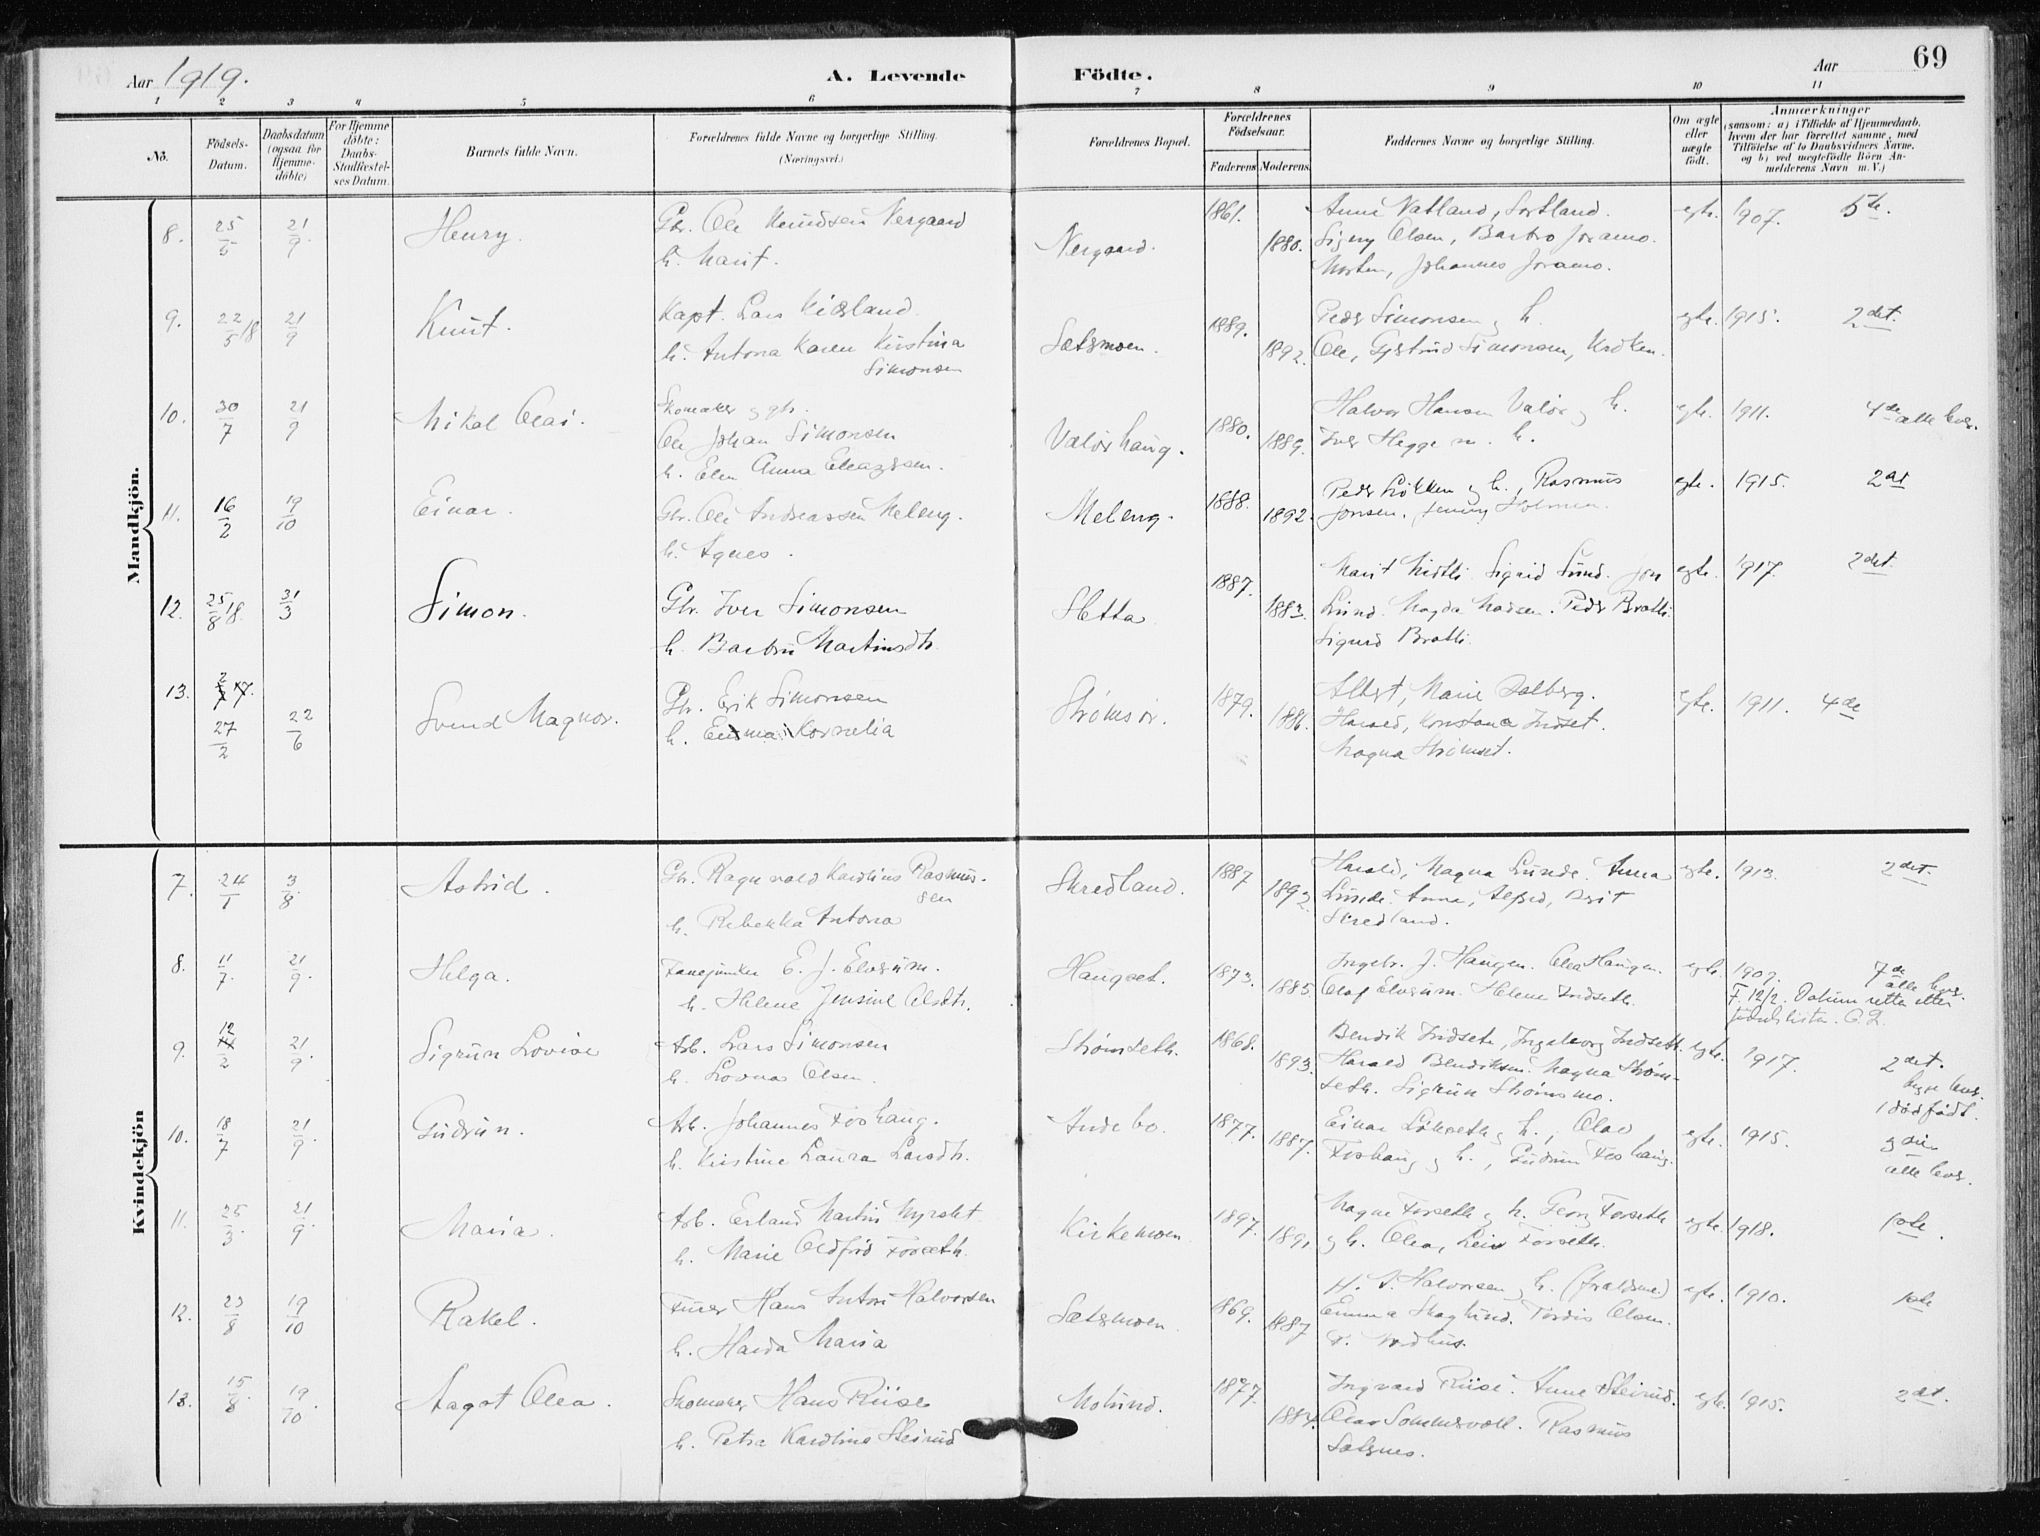 69
Aar 1919.
A. Levende Födte.
Aar
1 2 3 4 5 6 7 8 9 10 11
No.
Födsels-Datum.
Daabsdatum (ogsaa for Hjemme-döbte)
For Hjemme döbte: Daabs-Stadfæstel-ses Datum.
Barnets fulde Navn.
Forældrenes fulde Navne og borgerlige Stilling.
(Næringsvei.)
Forældrenes Bopæl.
Forældrenes Födselsaar.
Faderens Moderens
Faddernes Navne og borgerlige Stilling.
Om ægte eller uægte födt.
Anmærkninger
(saasom: a) i Tilfælde af Hjemmedaab,
hvem der har forrettet samme, med
Tilföielse af to Daabsvidners Navne,
og b) ved uægtefödte Börn An-
melderens Navn m. V.)
Mandkjön.
8. 25/5 21/9. Henry. Gbr. Ole Knudsen Nergaard
h. Marit.
Nergaard. 1861. 1880.
Anne Natland, Sortland.
Signy Olsen, Barbro Joramo.
Morten, Johannes Joramo.
egte. 1907. 5te.
9. 22/5 18 21/9 Knut. Kapt. Lars
h. Antona Karen Kirstina
Simonsen
Sætsmoen. 1889. 1892.
Peder Simonsen og h.
Ole, Simonsen, Kroken.
egte. 1915. 2det.
10. 30/7 21/9 Mikal Olai. Skomaker og gbr.
Ole Johan Simonsen
h. Elen Anna Eleazersen.
Valøshaug. 1880. 1889.
Halvor Hansen Valøs og h.
Iver Hegge m. h.
egte. 1911. 4de alle lever.
11. 16/2 19/10 Einar. Gbr. Ole Andreassen Meleng.
h. Agnes.
Meleng. 1888. 1892.
Peder Løkken og h., Rasmus
Jonsen, Jenny Holmen.
egte. 1915. 2det
12. 25/8 18. 31/3 Simon. Gbr. Iver Simonsen
h. Barbru Martinsdtr.
Sletta 1887. 1883.
Marit Sigrid Lund. Jon
Lund. Magda Madsen. Peder Bratli.
Sigurd Bratli.
egte. 1917. 2det.
13. 27/2 22/6 Svend Magnor. Gbr. Erik Simonsen
h. Emma Kornelia
Strømsør. 1879. 1886.
Albert, Marie Dalberg.
Harald, Konstance Indset.
Magna Strømset.
egte. 1911. 4de
Kvindekjön
7. 24/1 3/8. Astrid. Gbr. Ragnvald Karolius Rasmus-
sen
h. Rebekka Antona
Skredland. 1887 1892
Harald, Magna Lunde. Anna
Lunde. Anna, Alfred, Berit
Skredland.
egte. 1913. 2det.
8. 11/7. 21/9. Helga. Fanejunker E. J. Elvrum.
h. Helene Jensine Olsdtr.
Haugset. 1873. 1885
Ingebr. J. Haugen. Olea Haugen.
Olaf Elvrum. Helene Indseth.
egte. 1909. 7de alle lever.
F. 12/2. Datum rettet etter
fødselslisten. G. L.
9. 12/2 21/9. Sigrun Lovise Arb. Lars Simonsen
h. Lovna Olsen.
Strømseth. 1868. 1893.
Bendik Indseth, Ingeborg Indseth.
Harald Bendiksen. Magna Strøm-
seth. Sigrun Strømsmo.
egte. 1917. 2det.
begge lever.
1 dødfødt.
10. 18/7 21/9. Gudrun. Arb. Johannes Foshaug.
h. Kristine Laura Larsdtr.
Andsbo. 1877. 1887.
Einar Løkseth og h., Olav
Foshaug og h., Gudrun Foshaug.
egte. 1915. 3die
alle lever.
11. 25/3 21/9 Maria. Arb. Erland Martin Myrslet
h. Marie Oldfrid Forseth.
Kirkemoen. 1897. 1891.
Magne Forseth og h. Georg Forseth
og h. Olea, Leiv Forseth.
egte. 1918. 1ste.
12. 23/8 19/10 Rakel. Furer Hans Anton Halvorsen
h. Harda Maria
Sætsmoen. 1869. 1887
H. A. Halvorsen og h. (foreldrene)
Emma Skoglund. Tordis Olsen.
F. Nordhus.
egte. 1910. 1ste
13. 15/8. 19/10. Aagot Olea. Skomaker Hans Riise
h. Petra Karoline Steirud
Molund. 1877. 1884.
Ingvard Riise. Anne Steirud.
Olav Sommervoll. Rasmus
Sætsnes.
egte. 1915. 2det.